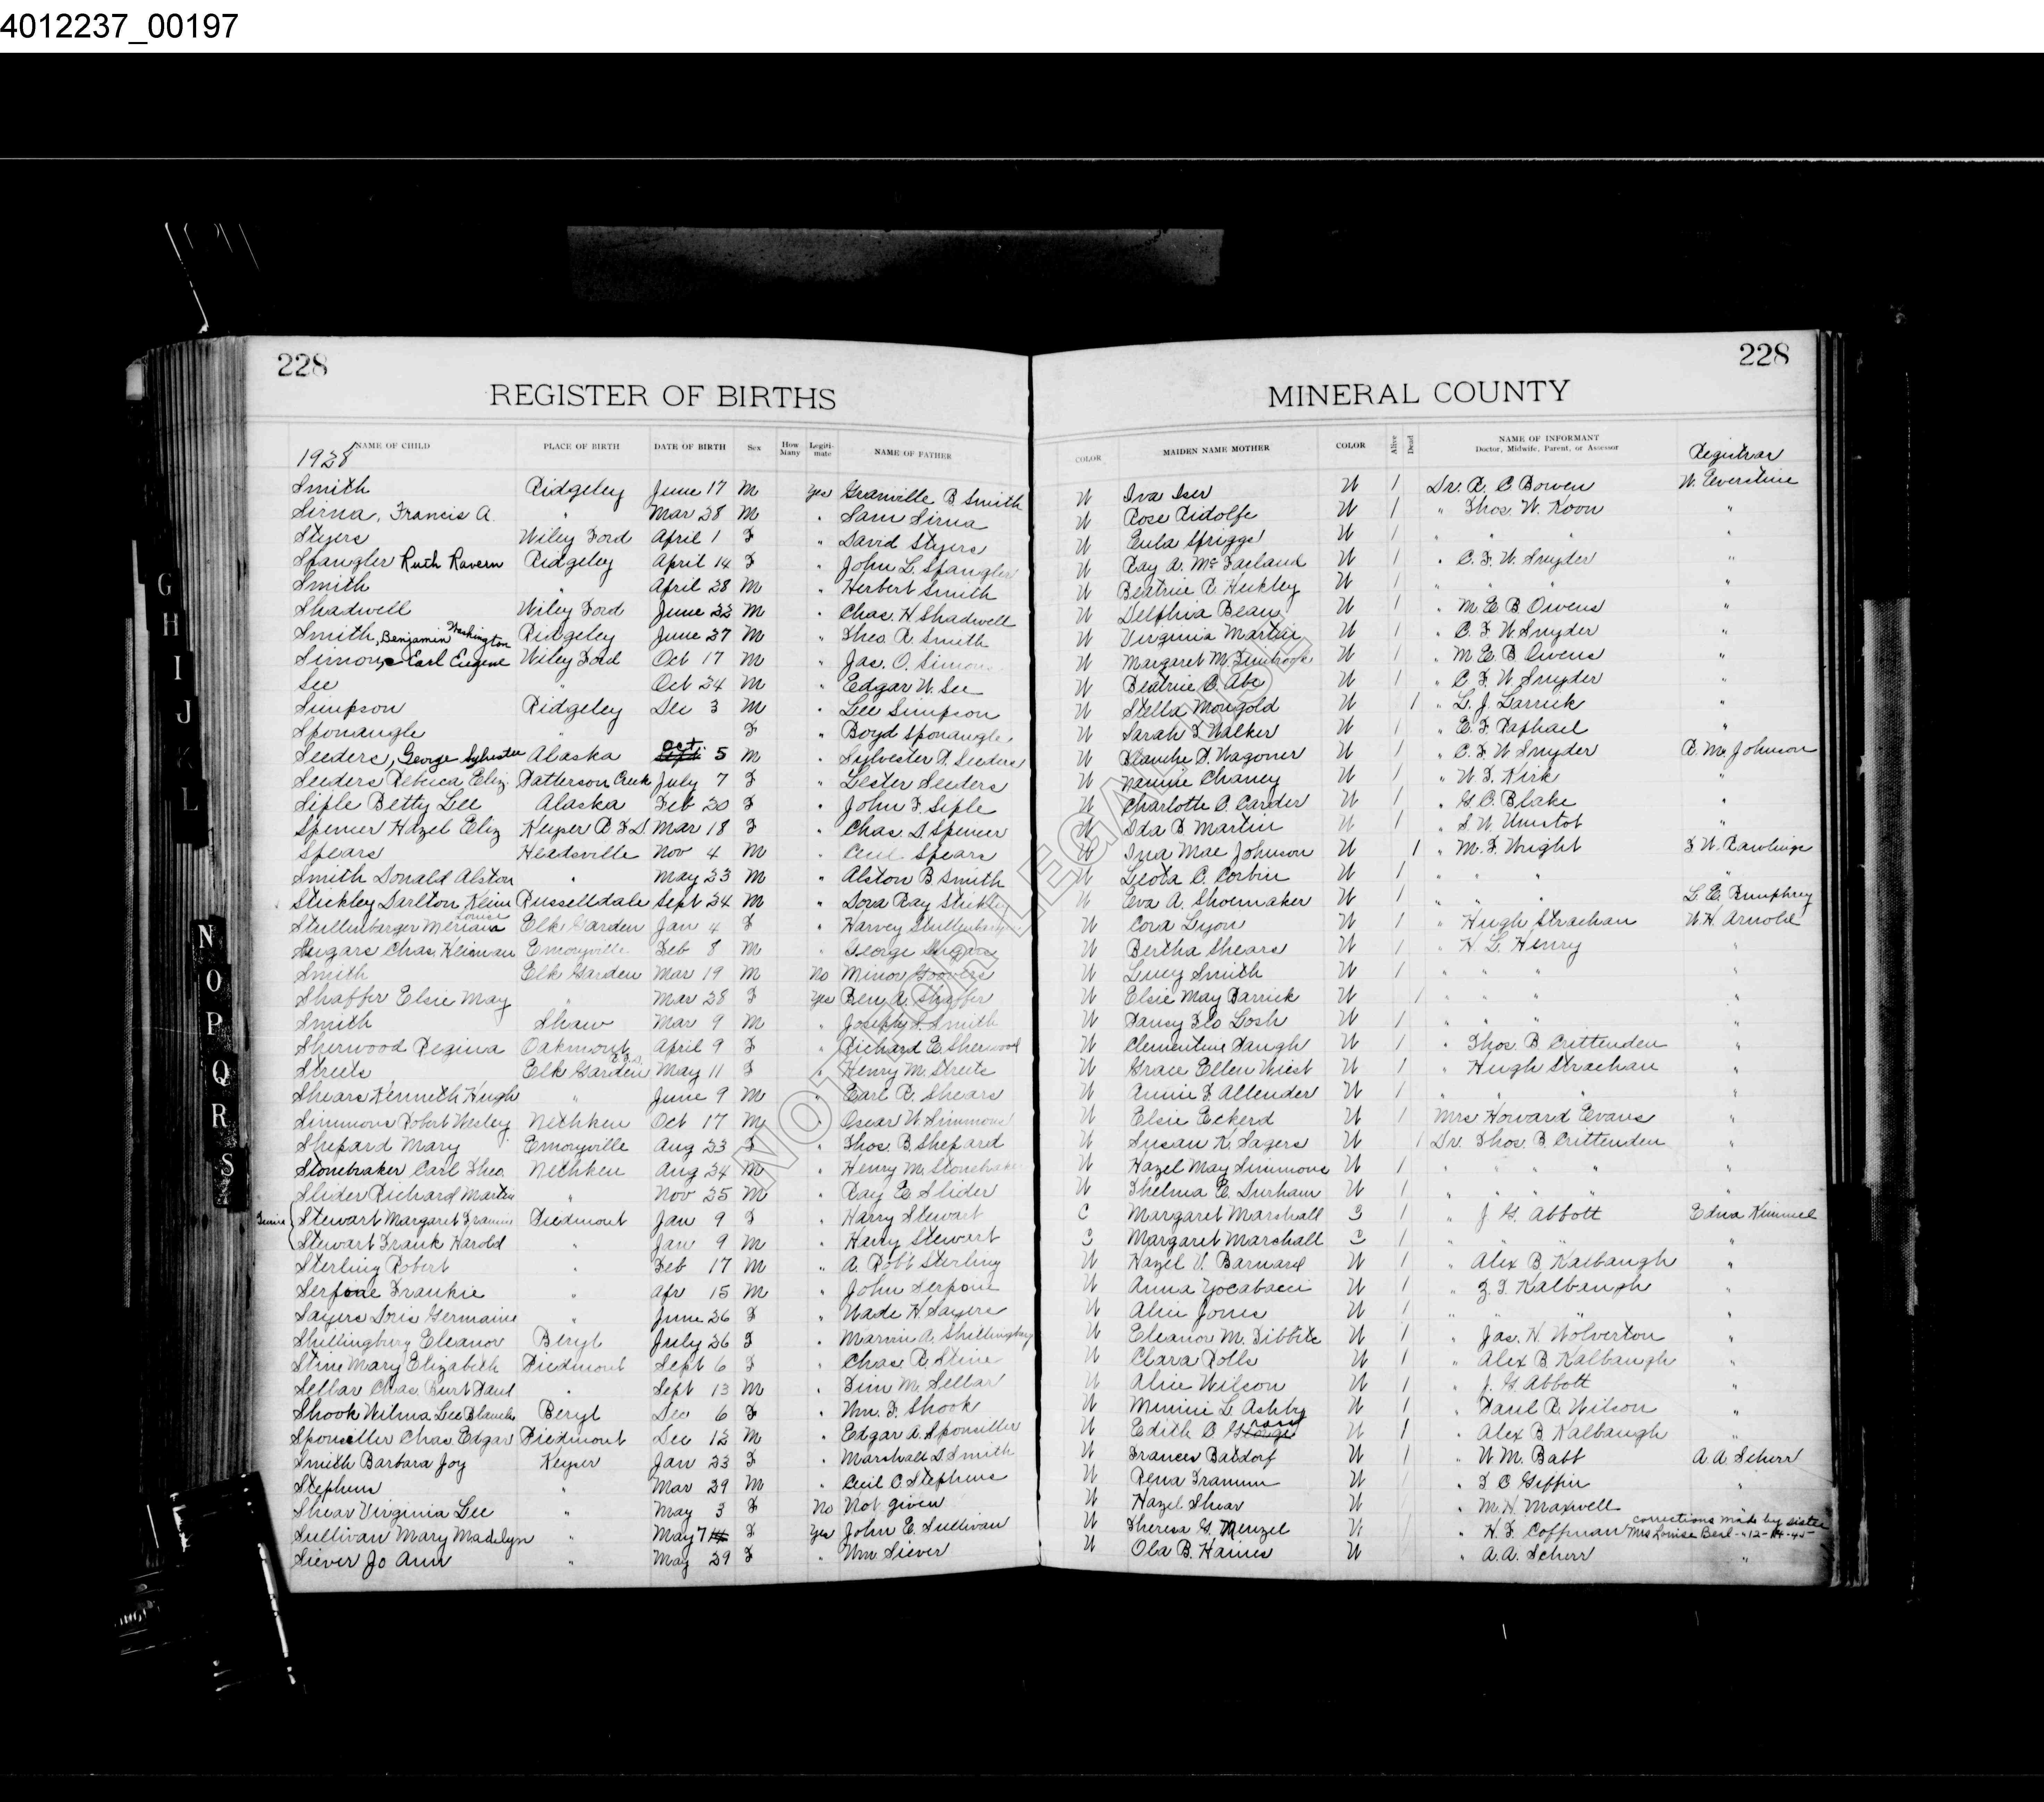 4012237_00197
228 228
REGISTER OF BIRTHS MINERAL COUNTY
NAME OF CHILD PLACE OF BIRTH DATE OF BIRTH Sex How Many Legiti-mate NAME OF FATHER COLOR MAIDEN NAME MOTHER COLOR Alive Dead NAME OF INFORMANT Doctor, Midwife, Parent, or Assessor Registrar
1928
Smith Ridgeley June 17 M Yes Granville B. Smith W Iva Iser W 1 Dr. R. C Bowen W. Everstine
Sirna, Francis A. " Mar 28 M " Sam Sirna W Rose Ridolfe W 1 " Thos. W. Koon "
Styers Wiley Ford April 1 F " David Styers W Eula Spriggs W 1 " " " "
Spangler Ruth Ravern Ridgeley April 14 F " John L. Spangler W Ray A. McFarland W 1 " C. F. W. Snyder "
Smith " April 28 M " Herbert Smith W Beatrice R. Heckley W 1 " " " "
Shadwell Wiley Ford June 22 M " Chas. H. Shadwell W Delphia Bean W 1 " M. E. B. Owens "
Smith, Benjamin Washington Ridgeley June 27 M " Theo. R. Smith W Virginia Martin W 1 " C. F. W. Snyder "
Simons Earl Eugene Wiley Ford Oct 17 M " Jas. O. Simons W Margaret M. W 1 " M. E. B. Owens "
See " Oct 24 M " Edgar W. See W Beatrice C. Abe W 1 " C. F. W Snyder "
Simpson Ridgeley Dec 3 M " Lee Simpson W Stella Mongold W 1 " L. J. Larrick "
Sponaugle " F " Boyd Sponaugle W Sarah F Walker W 1 " E. F. Raphael "
Seeders, George Sylvester Alaska Oct. 5 M " Sylvester P. Seeders W Blanche P. Wagoner W 1 " C. F. W Snyder R. M. Johnson
Seeders Rebica Eliz. Patterson Creek July 7 F " Lester Seeders W Nannie Chaney W 1 " W. F. Kirk "
Siple Betty Lee Alaska Feb 20 F " John F. Siple W Charlotte C. Carder W 1 " G. C. Blake "
Spencer Hazel Eliz Keyser R F D Mar 18 F " Chas. D Spencer W Ida B Martin W 1 " S. W. Umstot "
Spears Headsville Nov 4 M " Cecil Spears W Ina Mae Johnson W 1 " M. F. Wright F. W. Rawlings
Smith Donald Alston " May 23 M " Alston B. Smith W Leota C. Corbin W 1 " " " "
Stickley Darlton Kline Russelldale Sept 24 M " Dora Ray Stickley W Eva A. Shoemaker W 1 " " " L. E. Pumphrey
Shillenberger Meriam Louise Elk Garden Jan 4 F " Harvey Shillenberger W Cora Lyon W 1 " Hugh Strachan W. H. Arnold
Sugars Chas. Kleiman Emoryville Feb 8 M " George Sugars W Bertha Shears W 1 " H. L. Henry "
Smith Elk Garden Mar 19 M No Minor W Lucy Smith W 1 " " " "
Shaffer Elsie May " Mar 28 F Yes Ben. A. Shaffer W Elsie May Barrick W 1 " " " "
Smith Shaw Mar 9 M " Joseph S. Smith W Pansy Flo Losh W 1 " " " "
Sherwood Regina Oakmont April 9 F " Richard E. Sherwood W Clementine Paugh W 1 " Thos. B Crittenden "
Streets Elk Garden R.F.D. May 11 F " Henry M. Streets W Grace Ellen Wiest W 1 " Hugh Strachan "
Shears Kenneth Hugh " June 9 M " Earl R. Shears W Annie F. Allender W 1 " " " "
Simmons Robert Wesley Nethken Oct 17 M " Oscar W. Simmons W Elsie Eckerd W 1 Mrs Howard Evans "
Shepard Mary Emoryville Aug 23 F " Thos. B. Shepard W Susan K. Sagers W 1 Dr. Thos. B. Crittenden "
Stonebraker Carl Theo. Nethken Aug 24 M " Henry M. Stonebraker W Hazel May Simmons W 1 " " " " "
Slider Richard Martin " Nov 25 M " Ray E Slider W Thelma E. Durham W 1 " " " " "
Twins Stewart Margaret Francis Piedmont Jan 9 F " Harry Stewart C Margaret Marshall C 1 " J. G. Abbott Edna Kimmel
Stewart Frank Harold " Jan 9 M " Harry Stewart C Margaret Marshall C 1 " " " "
Sterling Robert " Feb 17 M " A. Robt Sterling W Hazel V. Barnard W 1 " Alex B. Kalbaugh "
Serfone Frankie " Apr 15 M " John Serpone W Anna Yocabacci W 1 " Z. T. Kalbaugh "
Sayers Doris Germaine " June 26 F " Wade H. Sayers W Alice Jones W 1 " " " "
Shillingburg Eleanor Beryl July 26 F " Marvin A. Shillingburg W Eleanor M. Dibbitt W 1 " Jas. H. Wolverton "
Stine Mary Elizabeth Piedmont Sept 6 F " Chas R. Stine W Clara Rolls W 1 " Alex B. Kalbaugh "
Sellar Chas. Burt Paul " Sept 13 M " Tim M. Sellar W Alice Wilson W 1 " J. G. Abbott "
Shook Wilma Lee Blanche Beryl Dec 6 F " Wm. F. Shook W Minnie L. Ashby W 1 " Paul R. Wilson "
Sponseller Chas. Edgar Piedmont Dec 12 M " Edgar A. Sponsiller W Edith C W 1 " Alex B. Kalbaugh "
Smith Barbara Joy Keyser Jan 23 F " Marshall D Smith W Frances Batdorf W 1 " W. M. Babb A. A. Scherr
Stephens " Mar 29 M " Cecil C. Stephens W Rena Frammm W " F C Giffin "
Shear Virginia Lee " May 3 F No Not given W Hazel Shear W " M. H. Maxwell "
Sullivan Mary Madelyn " May 7 F Yes John E. Sullivan W Theresa G. Menzel W " H. F. Coffman corrections made by sister Mrs Louise Berl - 12-14-45
Siever Jo Ann " May 29 F " Wm. Siever W Ola B. Haines W " A. A. Scherr "
NOT A LEGAL
G H I J K L N O P Q R S